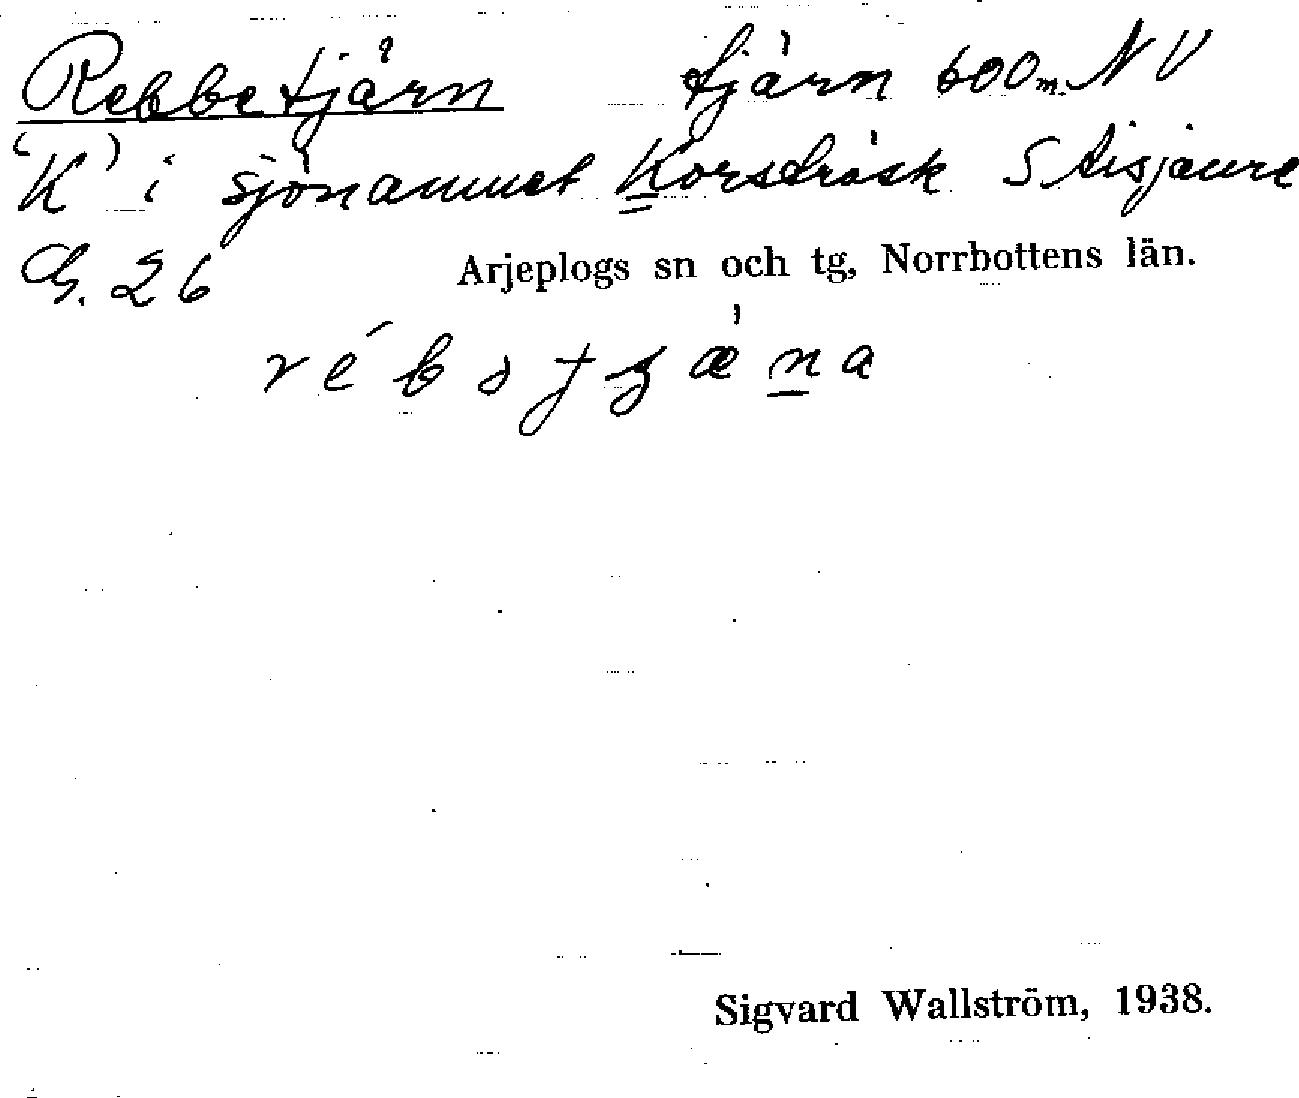 Rebbetjärn tjärn 600 m. NV
(K) i sjönamnet Korsträsk S Aisjaure
G. 26 Arjeplogs sn och tg, Norrbottens län.
Sigvard Wallström, 1938.